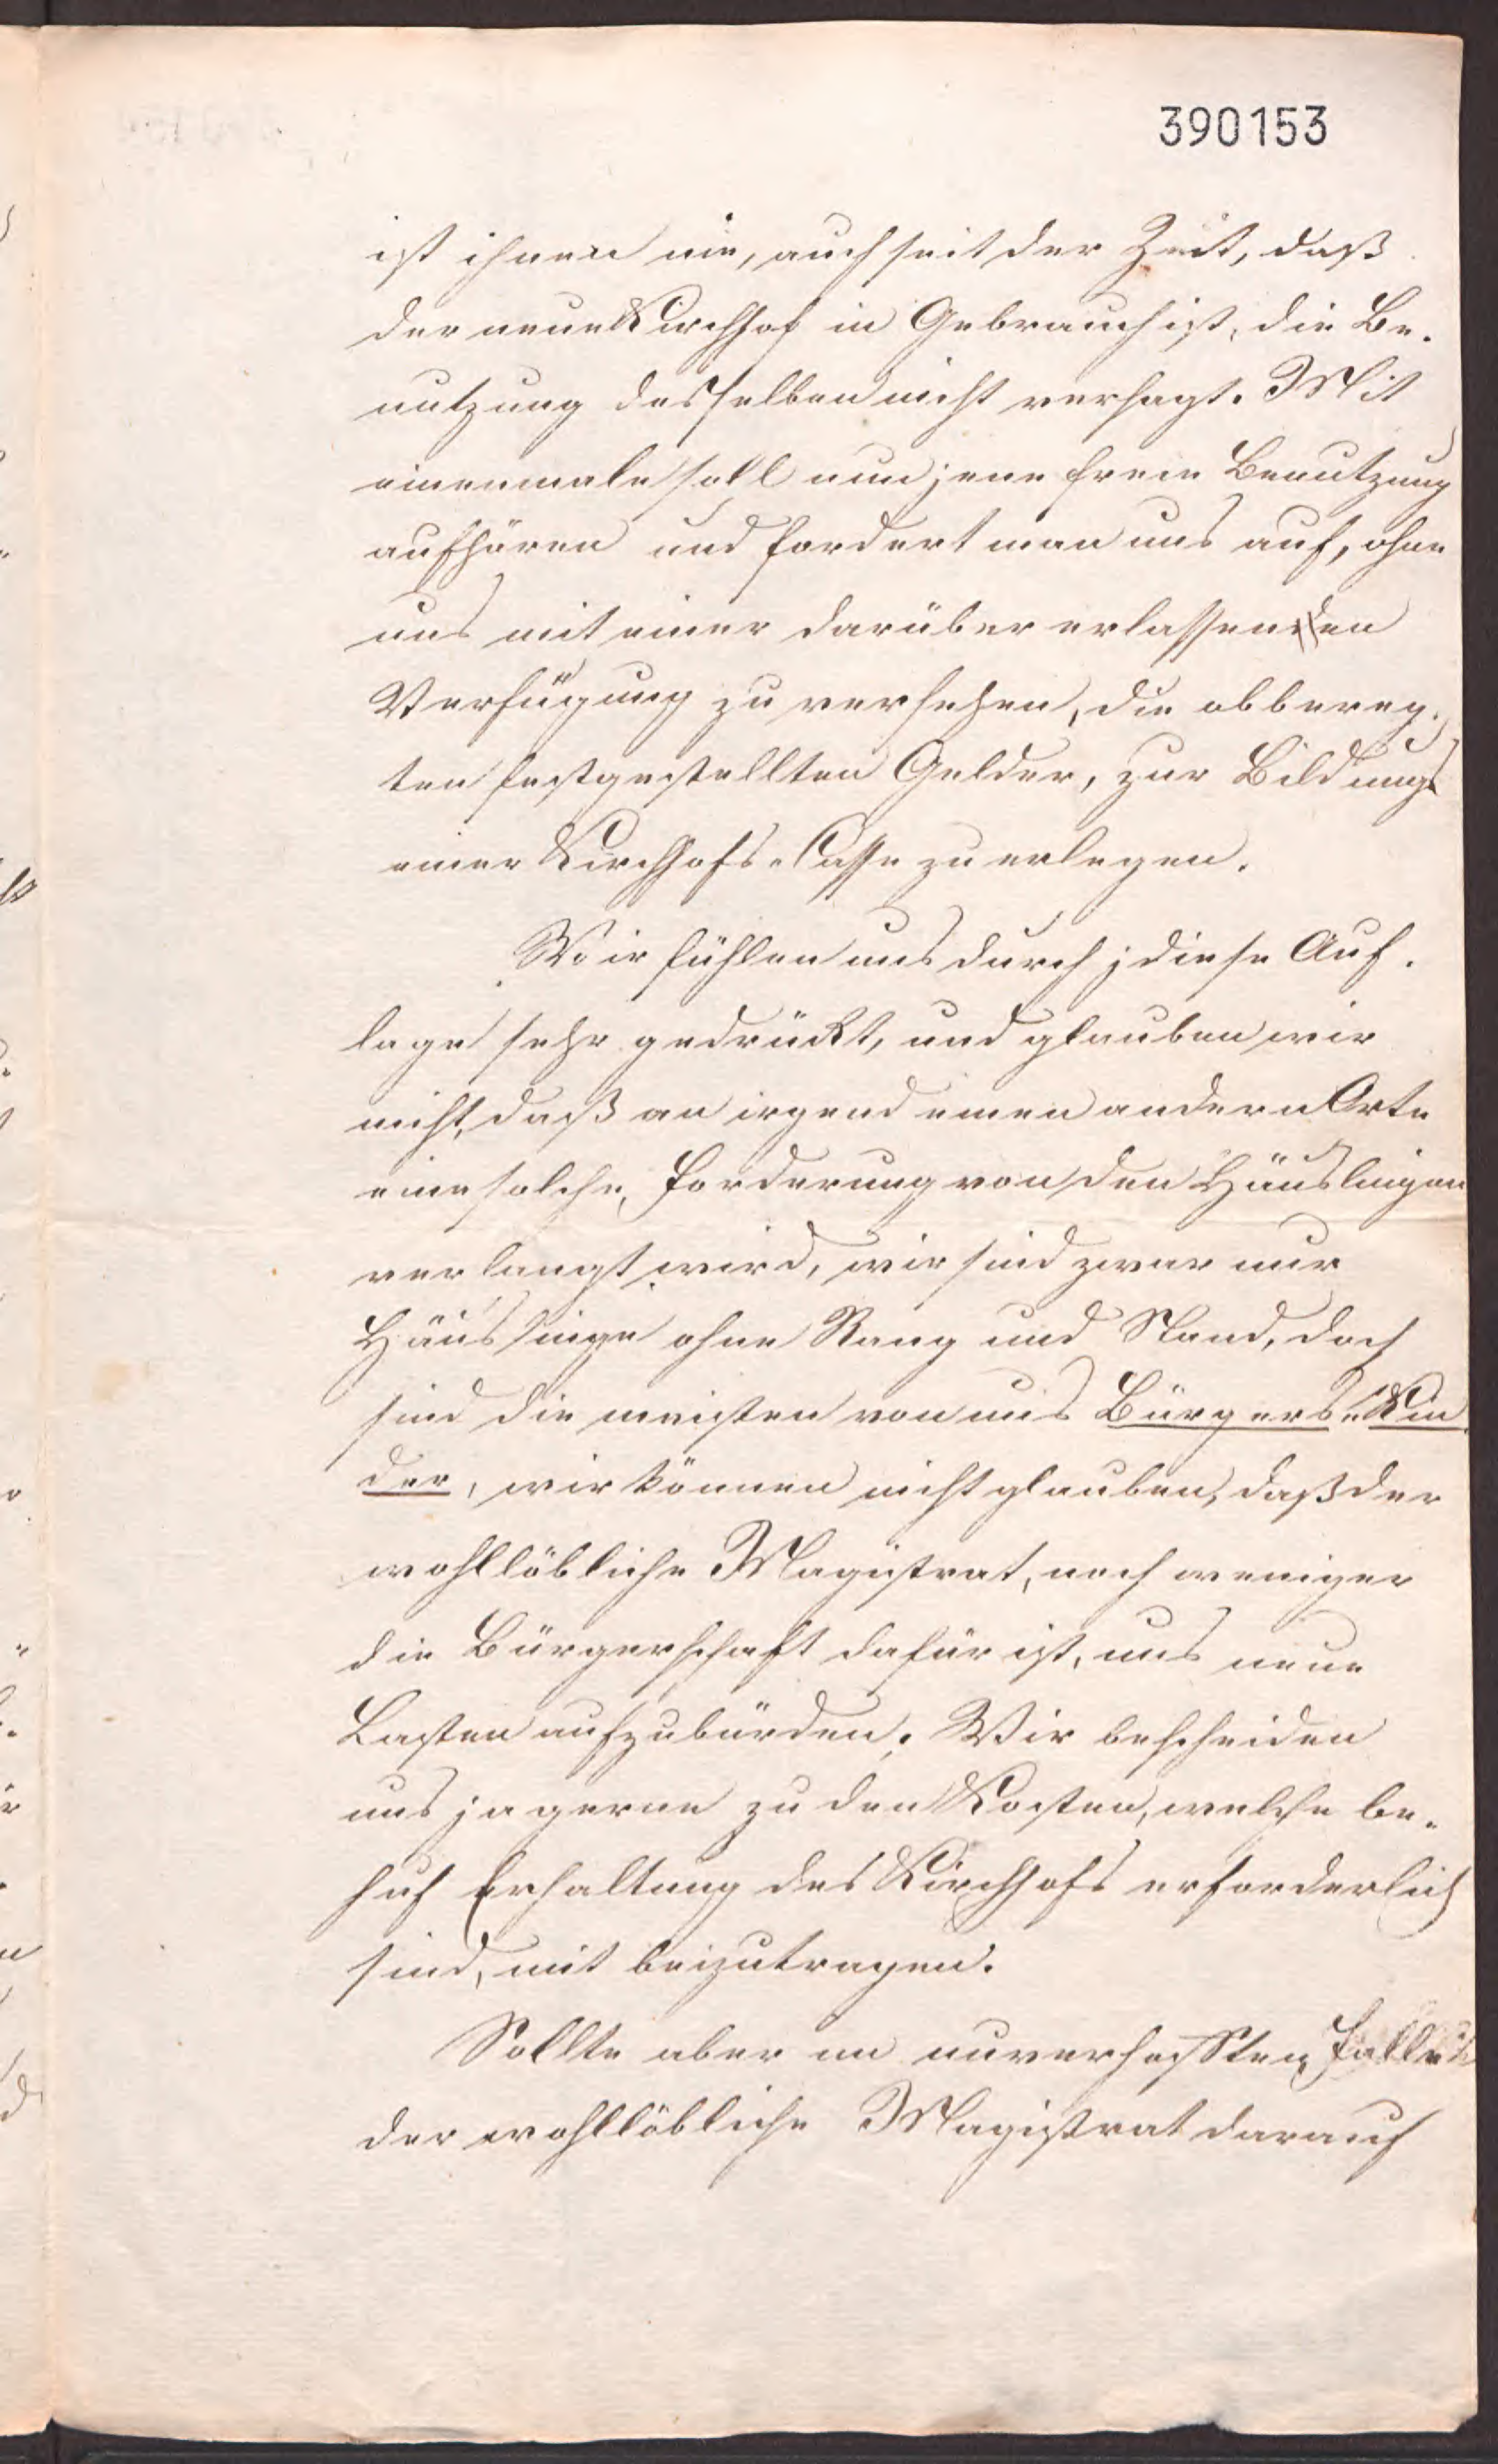 390153
ist ihnen nie, auch seit der Zeit, daß
der neue Kirchhof in Gebrauch ist, die Be-
nutzung desselben nicht versagt. Mit
einenmale soll nun jene freie Benutzung
aufhören und fordert man uns auf, ohne
uns mit einer darüber erlassenen
Verfügung zu versehen, die obbereg-
ten festgestellten Gelder, zur Bildung
einer Kirchhofs-Casse zu erlegen.
Wir fühlen uns durch diese Auf-
lage sehr gedrückt, und glauben wir
nicht, daß an irgend einen andern Orte
eine solche, Forderung von den Häuslingen
verlangt wird, wir sind zwar nur
Häuslinge ohne Rang und Stand, doch
sind die meisten von uns Bürgers-Kin-
der, wir können nicht glauben, daß der
wohllöbliche Magistrat, noch weniger
die Bürgerschaft dafür ist, uns neue
Lasten aufzubürden. Wir bescheiden
uns ja gerne zu den Kosten, welche be-
huf Erhaltung des Kirchhofs erforderlich
sind, mit beizutragen.
Sollte aber im unverhofften Falle
der wohllöbliche Magistrat darauf